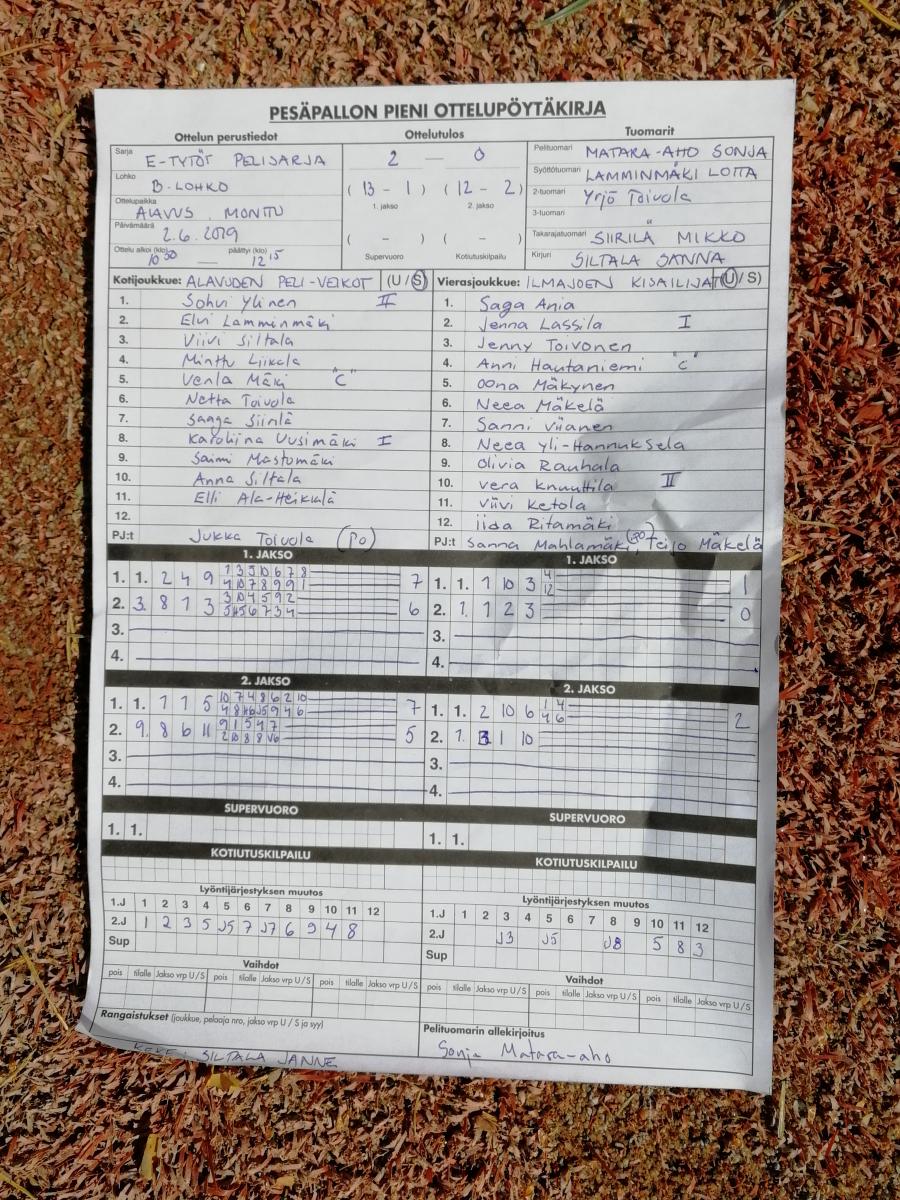 PESÄPALLON PIENI OTTELUPÖYTÄKIRJA
Ottelun perustiedot
Sarja E-TYTÖT PELISARJA
Lohko B-LOHKO
Ottelupaikka ALAVUS, MONTTU
Päivämäärä 2.6.2019
Ottelu alkoi (klo) 10 30 — päättyi (klo) 12 15
Ottelutulos
2 — 0
( 13 - 1 ) ( 12 - 2 )
1. jakso 2. jakso
( - ) ( - )
Supervuoro Kotiutuskilpailu
Tuomarit
Pelituomari MATARA-AHO SONJA
Syöttötuomari LAMMINMÄKI LOTTA
2-tuomari Yrjö Toivola
3-tuomari
Takarajatuomari SIIRILÄ MIKKO
Kirjuri SILTALA SANNA
Kotijoukkue: ALAVUDEN PELI-VEIKOT (U / S)
1. Sohvi Ylinen II
2. Elvi Lamminmäki
3. Viivi Siltala
4. Minttu Liikala
5. Venla Mäki "C"
6. Netta Toivola
7. Saaga Siirilä
8. Karoliina Uusimäki I
9. Saimi Mastomäki
10. Anna Siltala
11. Elli Ala-Heikkilä
12.
PJ:t Jukka Toivola (PO)
Vierasjoukkue: ILMAJOEN KISAILIJAT (U / S)
1. Saga Ania
2. Jenna Lassila I
3. Jenny Toivonen
4. Anni Hautaniemi "C"
5. Oona Mäkynen
6. Neea Mäkelä
7. Sanni Viianen
8. Neea Yli-Hannuksela
9. Olivia Rauhala
10. Vera Knuuttila II
11. Viivi Ketola
12. Iida Ritamäki
PJ:t Sanna Mahlamäki (PO), Teijo Mäkelä
1. JAKSO
1. 1. 2 4 9 1 3 5 10 6 7 8 7
4 10 7 8 9 9 1
2. 3. 8 1 3 3 10 4 5 9 2 6
3.
4.
1. JAKSO
1. 1. 1 10 3 4 1
12
2. 1. 1 2 3 0
3.
4.
2. JAKSO
1. 1. 1 1 5 10 7 4 8 6 2 10 7
2. 9. 8 6 11 9 1 5 4 7 5
3.
4.
2. JAKSO
1. 1. 2 10 6 1 4 2
4 6
2. 7. 1 10
3.
4.
SUPERVUORO
1. 1.
SUPERVUORO
1. 1.
KOTIUTUSKILPAILU
KOTIUTUSKILPAILU
Lyöntijärjestyksen muutos
1.J 1 2 3 4 5 6 7 8 9 10 11 12
2.J 1 2 3 5 J5 7 J7 6 9 4 8
Sup
Lyöntijärjestyksen muutos
1.J 1 2 3 4 5 6 7 8 9 10 11 12
2.J J3 J5 J8 5 8 3
Sup
Vaihdot
pois tilalle Jakso vrp U / S pois tilalle Jakso vrp U / S pois tilalle Jakso vrp U / S
Vaihdot
pois tilalle Jakso vrp U / S pois tilalle Jakso vrp U / S pois tilalle Jakso vrp U / S
Rangaistukset (joukkue, pelaaja nro, jakso vrp U / S ja syy)
SILTALA JANNE
Pelituomarin allekirjoitus
Sonja Matara-aho